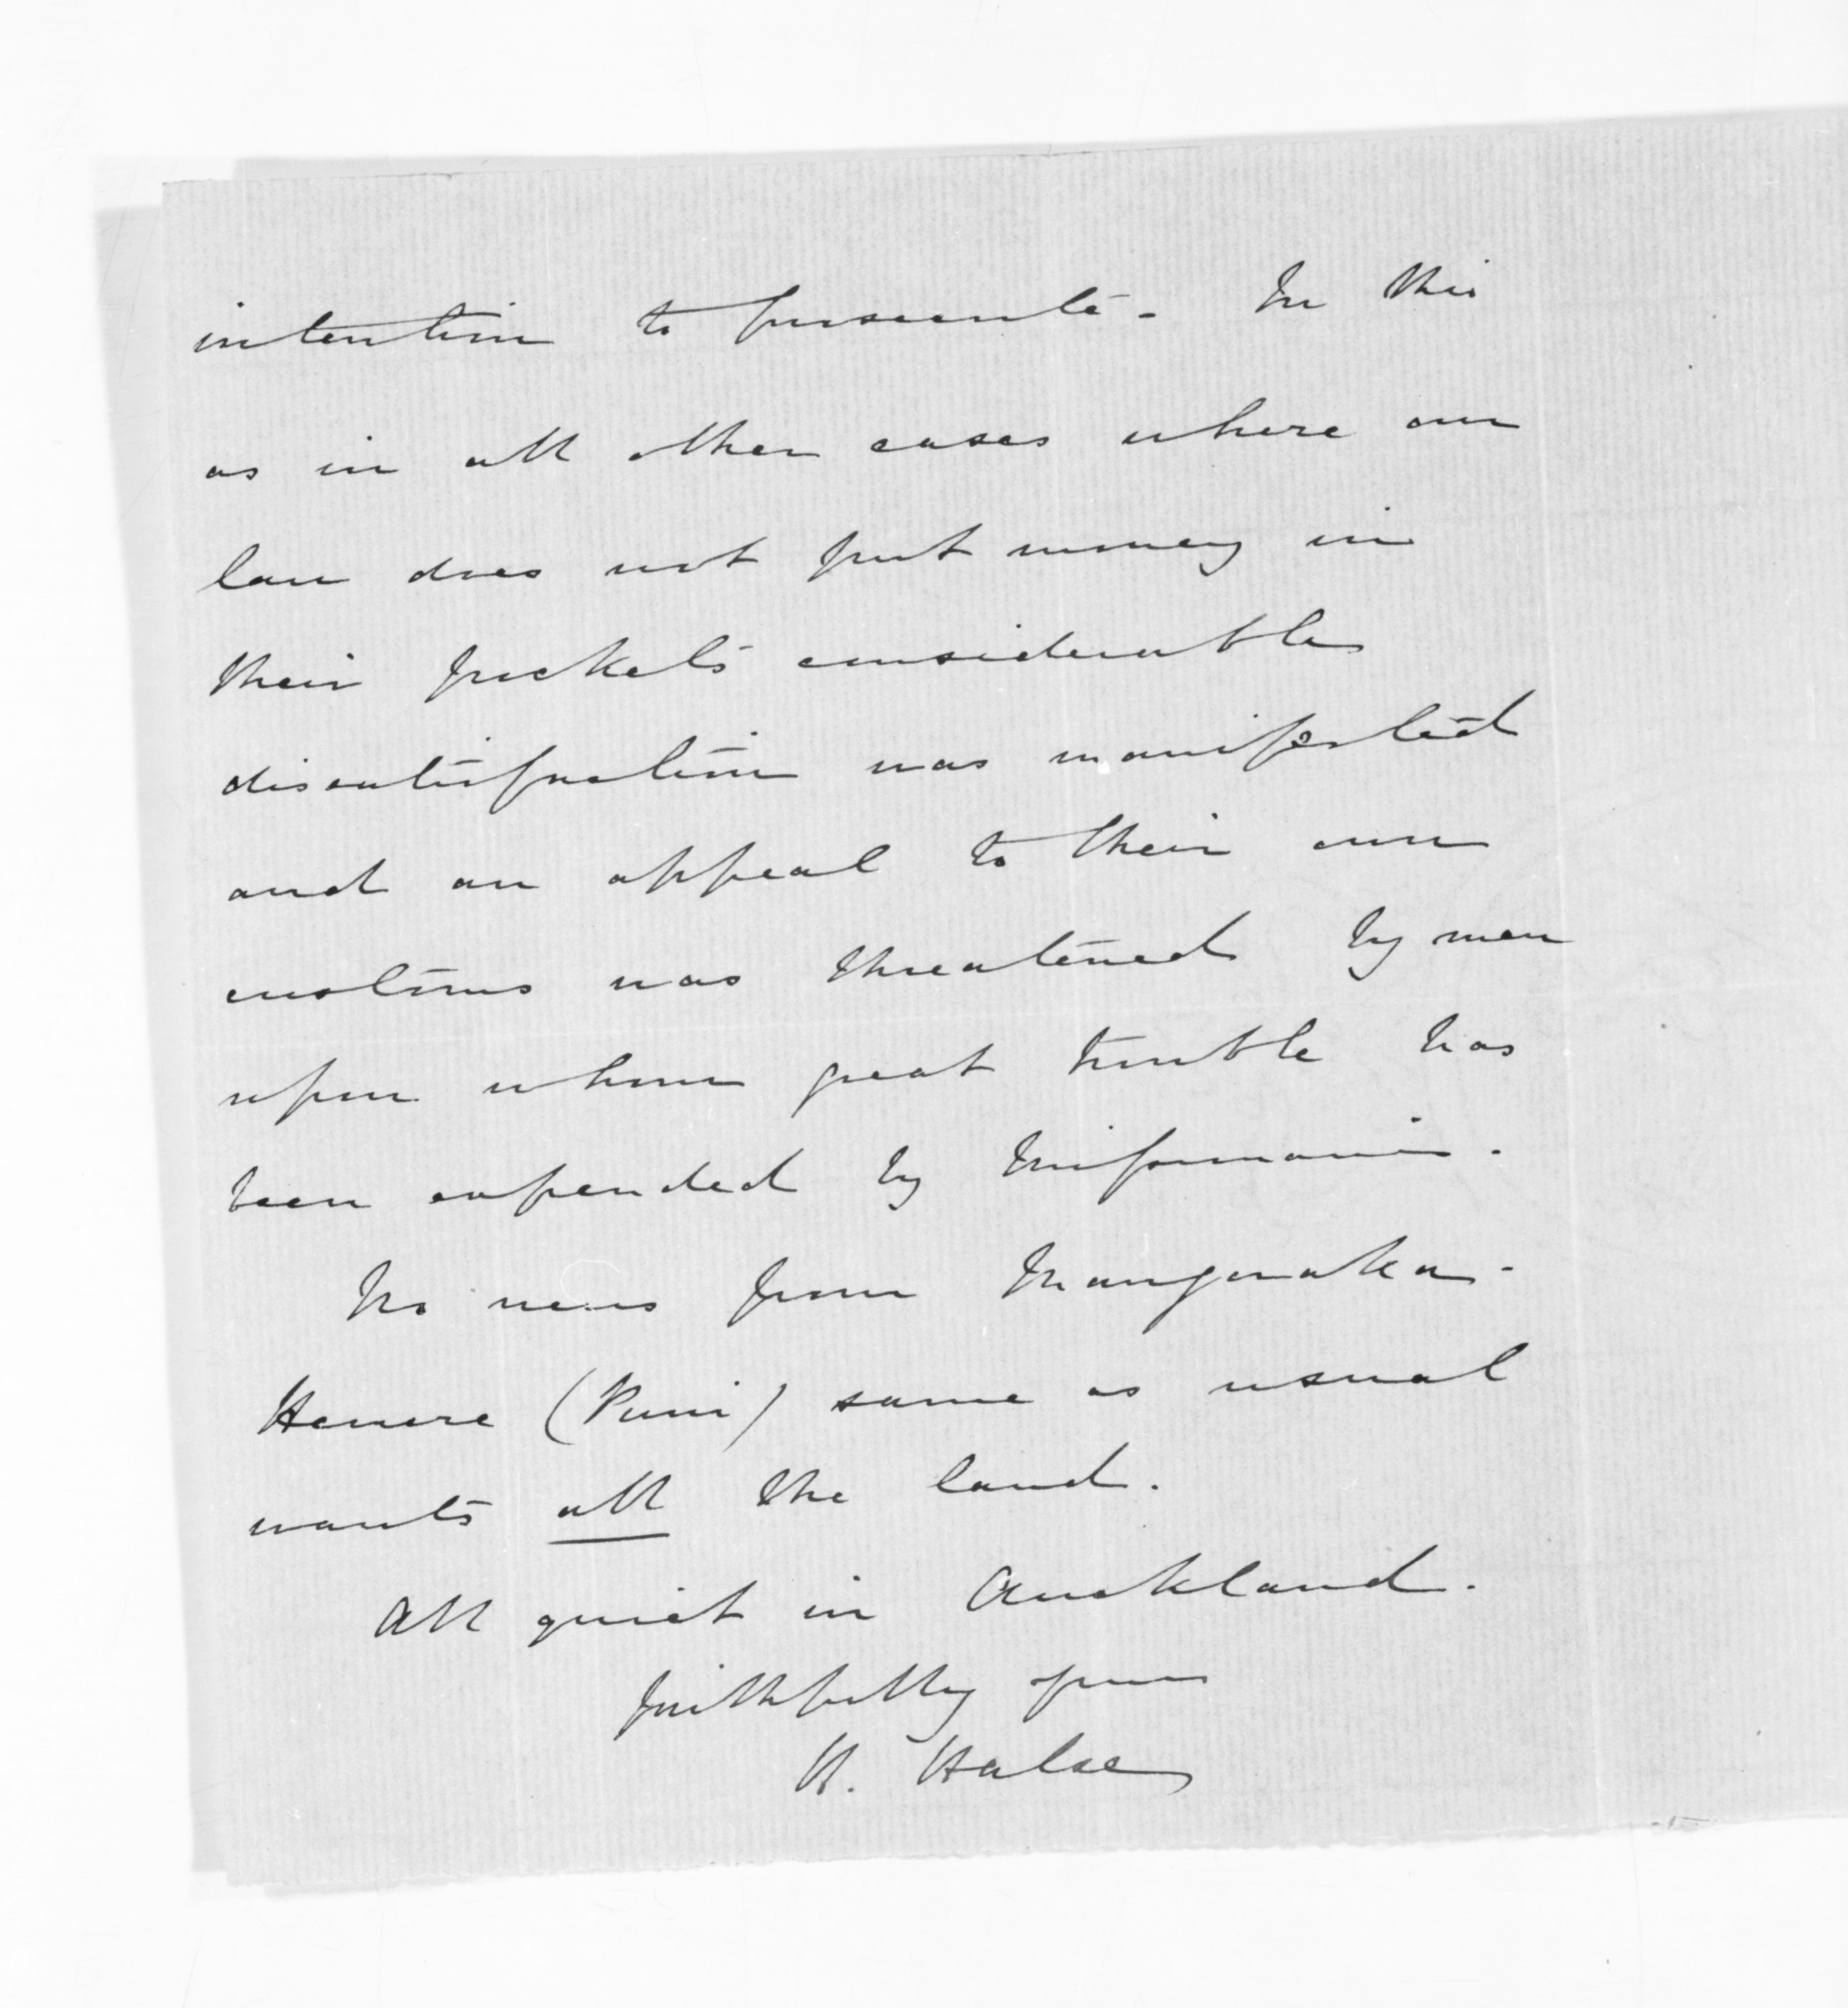 intention to prosecute. In this
as in all other cases where our
law does not put money in
their pockets considerable
dissatisfaction was manifested
and an appeal to their own
customs was threatened by men
upon whom great trouble has
been expended by Missionaries.
No news from Mangoraka.
Henere (Puni) same as usual
wants all the land.
All quiet in Auckland.
faithfully yours
H. Halse